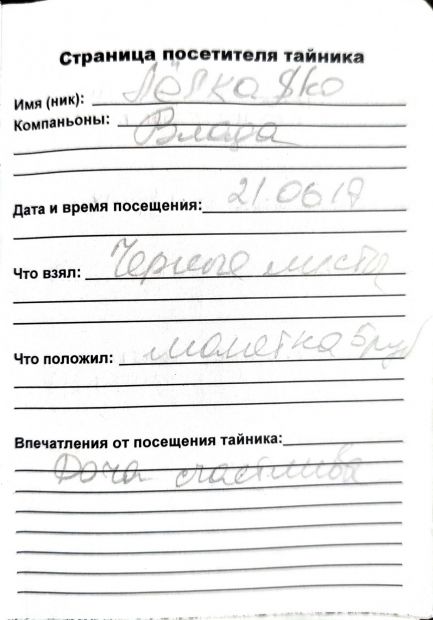 Страница посетителя тайника
Имя (ник): Лёлка $ko
Компаньоны: Влада
Дата и время посещения: 21.06.19
Что взял: Черные листы
Что положил: монетка 5 руб
Впечатления от посещения тайника:
Доча счастлива